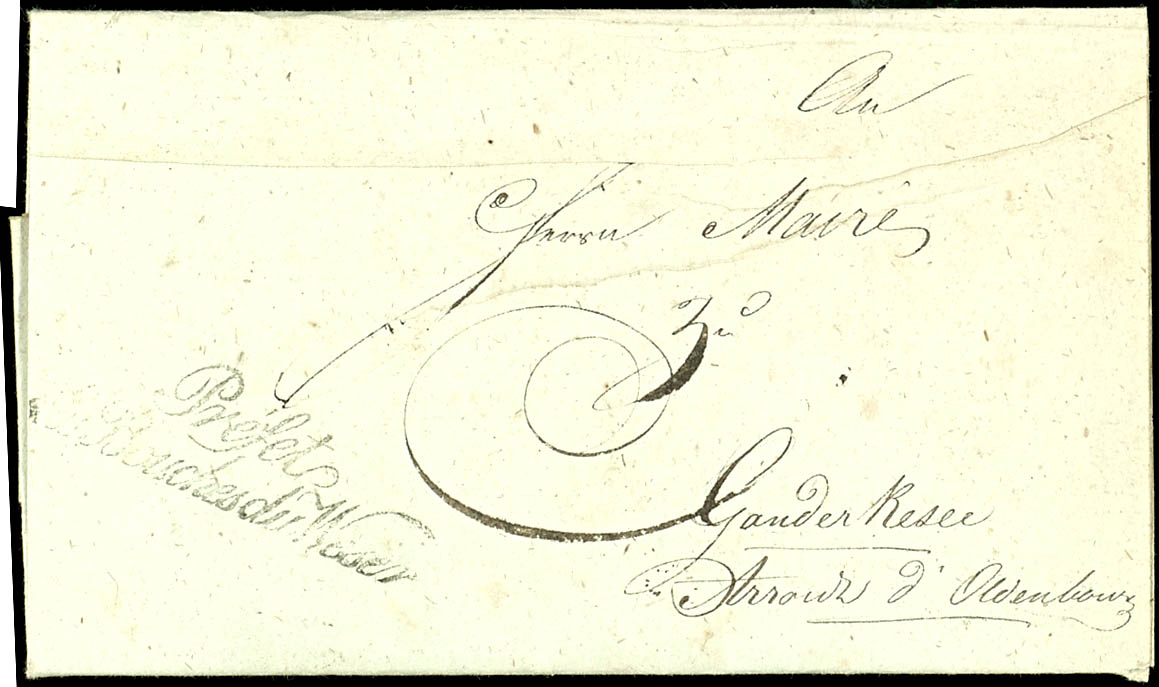 An
Herrn Maire
Zu
GanderKesee
Arrondt d' Oldenbourg
Prefet
Bouches du Weser